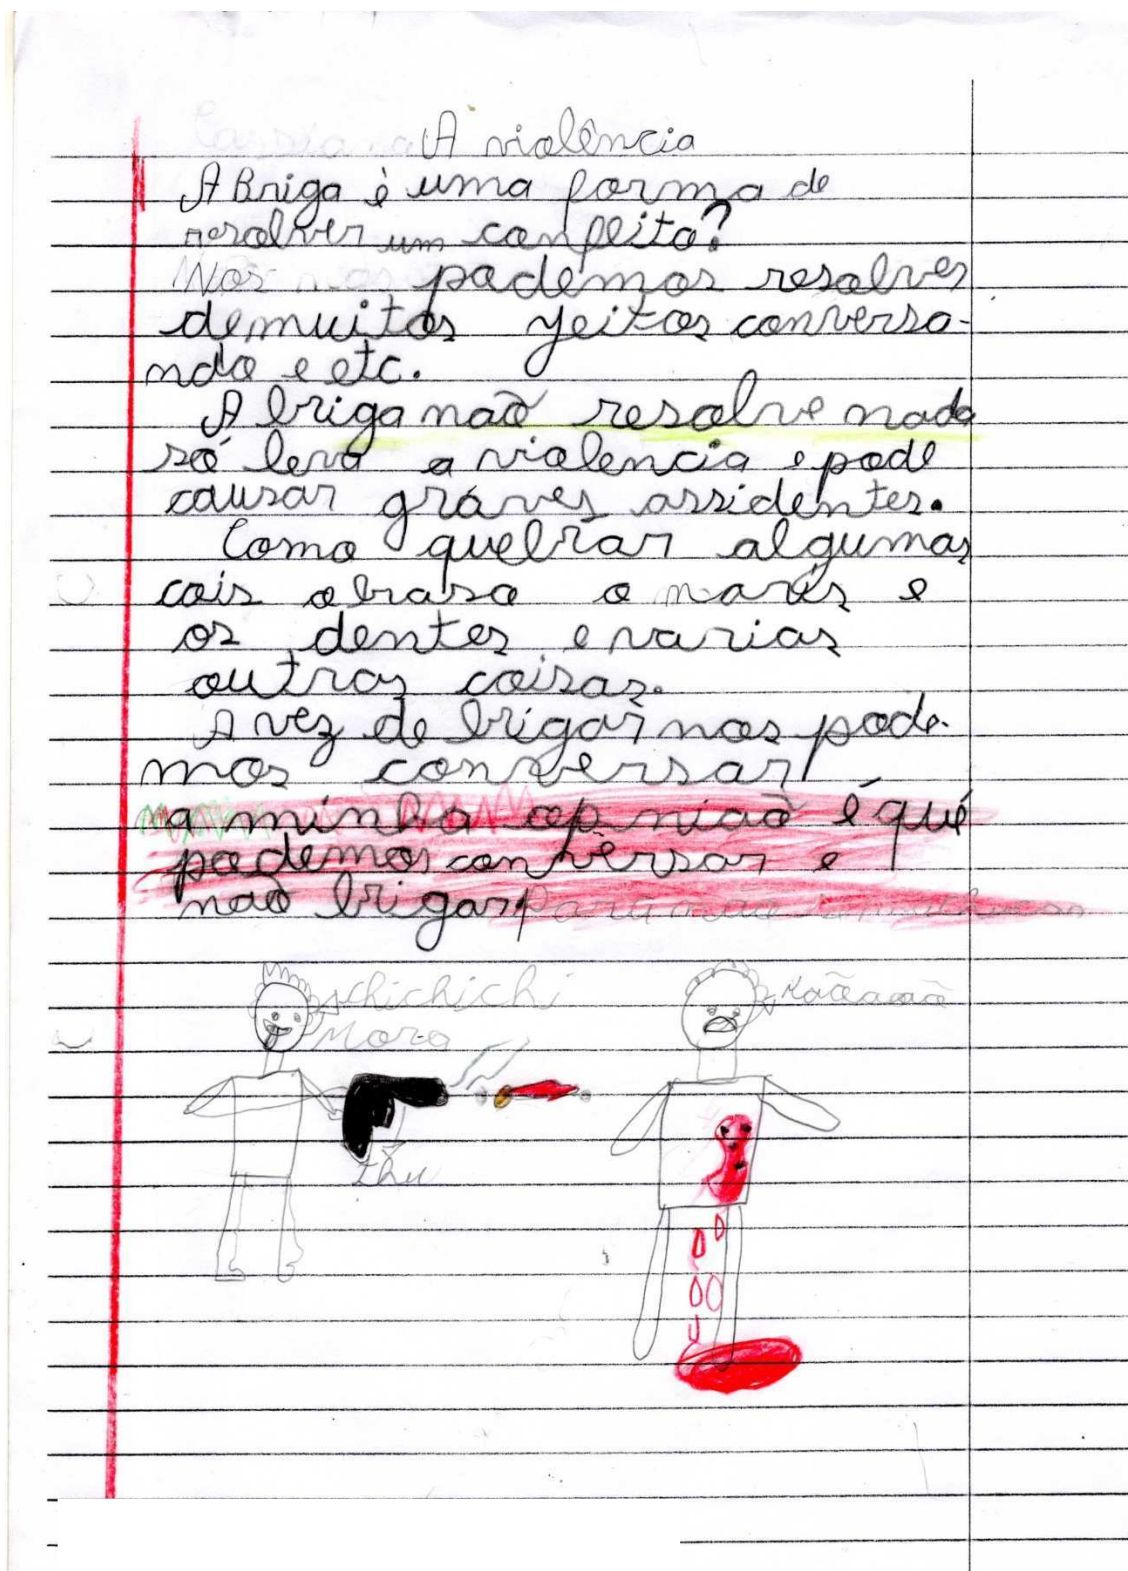 A violência
A Briga è uma forma de
resolver um confleito?
Nos podemos resolver
demuitos jeitos conversa-
ndo e etc.
A briga naõ resolve nada
só leva a violencia e pode
causar gráves assidentes.
Como quebrar algumas
cois o braso o narís e
os dentes e varias
outras coisas.
A vez de brigar nos pode-
mos conversar
a minha opniaõ é qué
podemos convèrsar e
naõ brigar. para não
chichichi
Mora
thu
Nãããããã